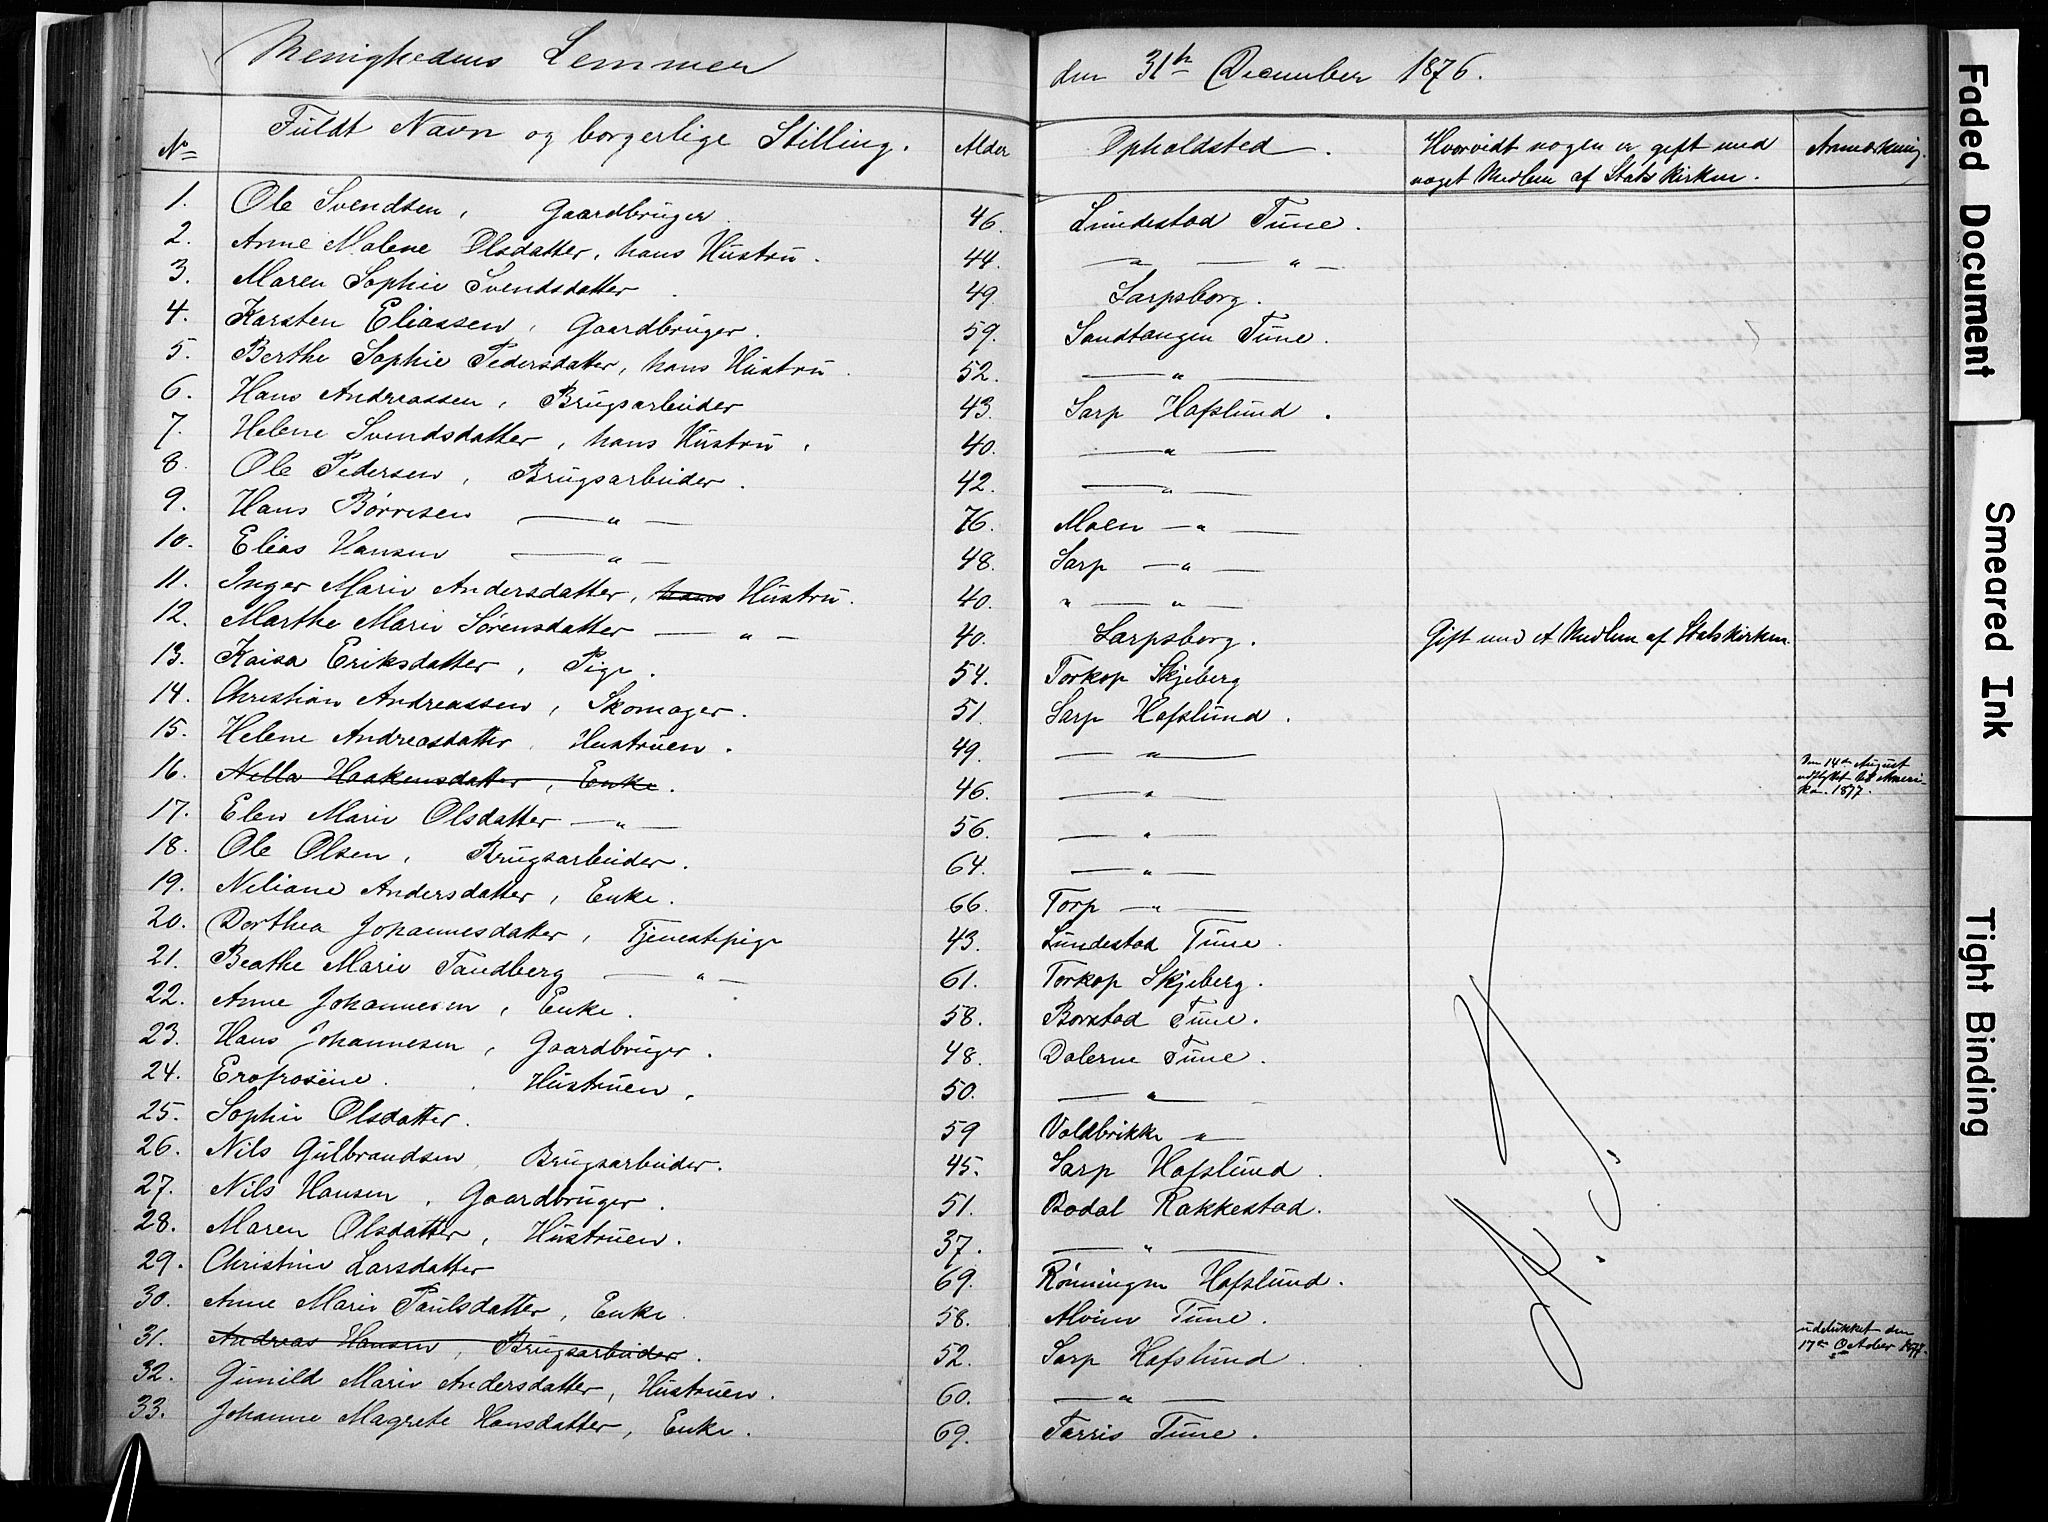 Menighedens Lemmer den 31te December 1876.
No Fuldt Navn og borgerlige Stilling. Alder Opholdsted. Hvorvidt nogen er gift med noget Medlem af Statskirken. Anmærkning.
1. Ole Svendsen, Gaardbruger. 46. Lundestad Tune.
2. Anne Malene Olsdatter, hans Hustru. 44. — " — " —
3. Maren Sophie Svendsdatter. 49 Sarpsborg.
4. Karsten Eliassen, Gaardbruger. 59. Sandtangen Tune.
5. Berthe Sophie Pedersdatter, hans Hustru. 52. — " —
6. Hans Andreassen, Brugsarbeider 43. Sarp Hafslund.
7. Helene Svendsdatter, hans Hustru. 40. — " —
8. Ole Pedersen, Brugsarbeider. 42. — " —
9. Hans Børresen — " — 76. Moen — " —
10. Elias Hansen — " — 48. Sarp — " —
11. Inger Marie Andersdatter, hans Hustru. 40. " — " —
12. Marthe Marie Sørensdatter — " — 40. Sarpsborg. Gift med et Medlem af Statskirken.
13. Kaisa Eriksdatter, Pige. 54. Torkop Skjeberg
14. Christian Andreassen, Skomager. 51. Sarp Hafslund.
15. Helene Andreasdatter, Hustruen. 49. — " —
16. Nella Haakensdatter, Enke. 46. — " — Den 14de August udflyttet til Ameri-
ka. 1877.
17. Elen Marie Olsdatter — " — 56. — " —
18. Ole Olsen, Brugsarbeider. 64. — " —
19. Neliane Andersdatter, Enke. 66. Torp — " —
20. Dorthea Johannesdatter, Tjenestepige 43. Lundestad Tune.
21. Beathe Marie Tandberg — " — 61. Torkop Skjeberg.
22. Anne Johannesen, Enke. 58. Borstad Tune.
23. Hans Johannesen, Gaardbruger. 48. Dalerne Tune.
24. Erofrosine. Hustruen, 50. — " —
25. Sophie Olsdatter. 59 Valdbrikke — " —
26. Nils Gulbrandsen, Brugsarbeider. 45. Sarp Hafslund.
27. Nils Hansen, Gaardbruger. 51. Bodal Rakkestad.
28. Maren Olsdatter, Hustruen. 37. — " —
29. Christine Larsdatter 69. Rønningen Hafslund.
30. Anne Marie Paulsdatter, Enke. 58. Alvim Tune.
31. Andreas Hansen, Brugsarbeider. 52. Sarp Hafslund. udelukket den
17de October 1877.
32. Gunild Marie Andersdatter, Hustruen. 60. — " —
33. Johanne Magrete Hansdatter, Enke. 69. Tarris Tune.
Faded Document
Smeared Ink
Tight Binding